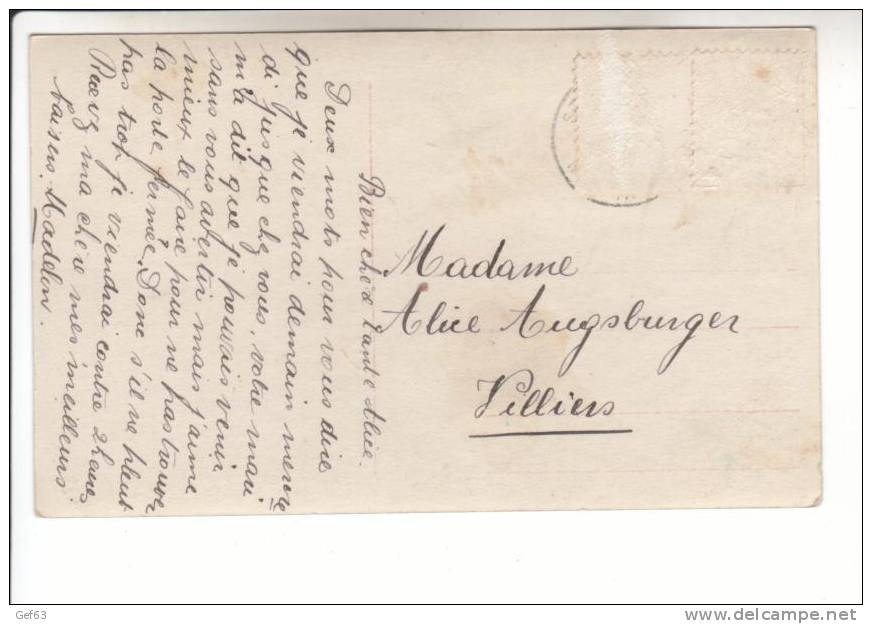 Bien chère tante Alice.
Deux mots pour vous dire
que je viendrai demain mercre
di jusque chez vous, votre mari
m'a dit que je pouvais venir
sans vous avertir mais j'aime
mieux le faire pour ne pas trouver
la porte fermée. Donc s'il ne pleut
pas trop je viendrai contre 2 heures
Recevez ma chère mes meilleurs
baisers. Madelon.
Madame
Alice Augsburger
Villiers
Gef63
www.delcampe.net